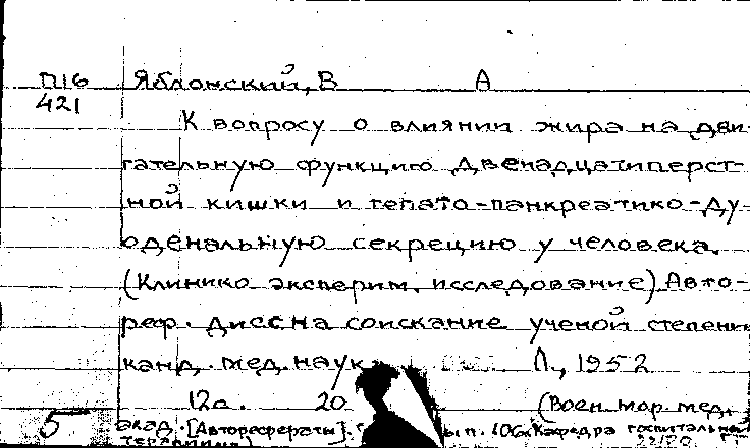 П16 Яблонский, В А
421
К вопросу о влиянии жира на дви-
гательную функцию двенадцатиперст-
ной кишки и гепато-панкреатико-ду-
оденальную секрецию у человека.
(Клинико эксперим. исследование) Авто-
реф. дисс на соискание ученой степени
канд. мед. наук Л., 1952
12с. 20 (Воен. мор. мед.
5 акад. [Авторефераты]. вып. 106. Кафедра госпитальной
терапии